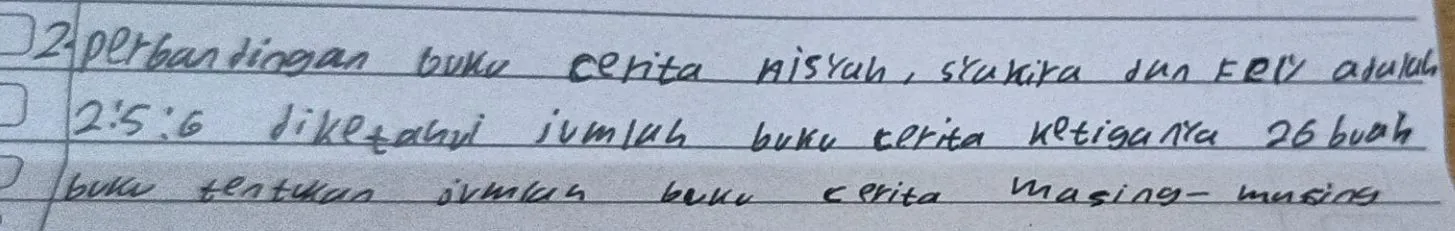 2. perbandingan buku cerita nisyah, syakira dan kely adalah
2:5:6 diketahui jumlah buku cerita ketiganya 26 buah
buku tentukan jumlah buku cerita masing-masing